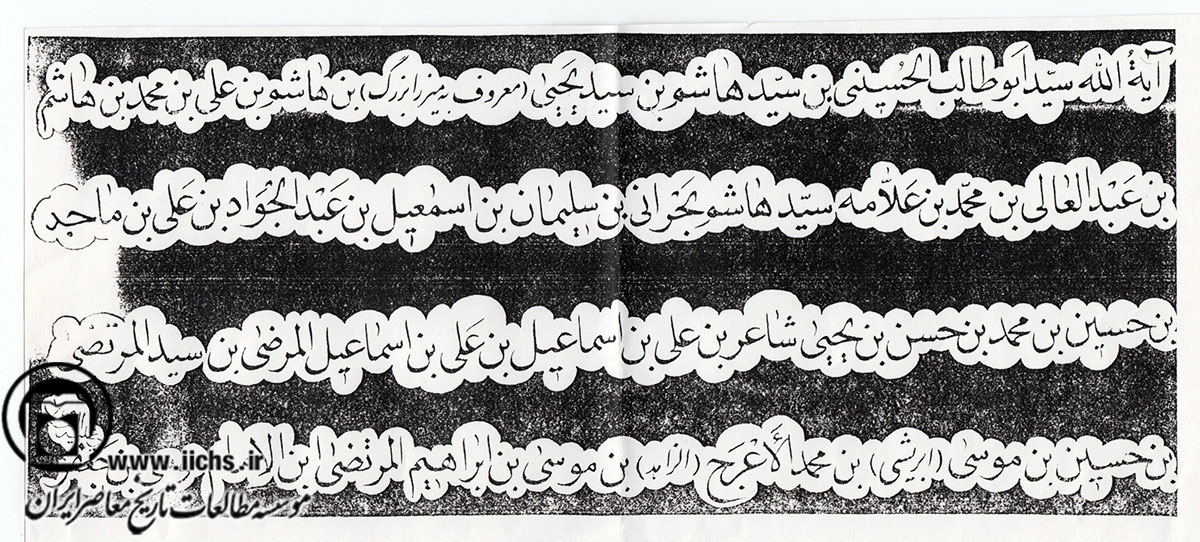 آیة الله سیّد ابوطالب الحُسینی بن سیّد هاشم بن سید یحییٰ (معروف به میرزابزرگ) بن هاشم بن علی بن محمد بن هاشم
بن عَبد العٰالی بن محمّد بن عَلاّمه سیّد هاشم بَحرانی بن سلیمان بن اسمٰعیل بن عَبد الجَواد بن عَلی بن ماجد
بن حسین بن محمد بن حسن بن یحییٰ شاعر بن علی بن اسماعیل بن عَلی بن اسماعیل المرضیٰ بن سید المرتضیٰ
بن حسین بن موسیٰ (ابرشی) بن محمد الأعرج (الزاهد) بن موسیٰ بن ابراهیم المرتضیٰ ابن الامام
www.iichs.ir
موسسه مطالعات تاریخ معاصر ایران